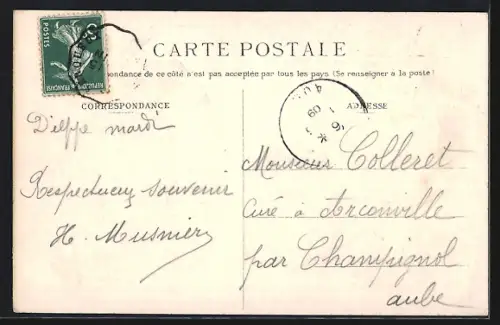 CARTE POSTALE
pondance de ce côté n'est pas acceptée par tous les pays (Se renseigner à la poste)
CORRESPONDANCE
Dieppe mardi
Respectueux souvenir
H. Musnier
ADRESSE
Monsieur Colleret
Curé à Arconville
par Champignol
aube
POSTES
REPUBLIQUE FRANÇAISE
09